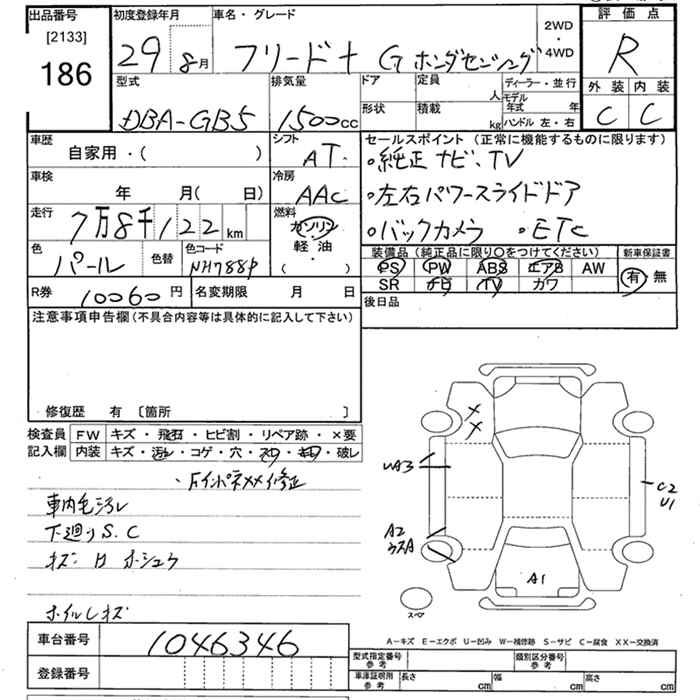 出品番号
[2133]
186
初度登録年月
29 8月
車名・グレード
フリード+ G ホンダセンシング
2WD
・
4WD
評価点
R
外装 内装
C C
型式
DBA-GB5
排気量
1500cc
ドア
形状
定員
人
積載
kg
ディーラー・並行
モデル
年式 年
ハンドル 左・右
車歴
自家用・( )
シフト
AT
セールスポイント (正常に機能するものに限ります)
・純正ナビ、TV
・左右パワースライドドア
・バックカメラ ・ETC
車検
年 月( 日)
冷房
AAC
走行
7万8千122km
燃料
ガソリン
軽油
( )
色
パール
色替
色コード
NH788P
装備品 (純正品に限り○をつけてください)
PS PW ABS エアB AW
SR ナビ TV カワ
新車保証書
有・無
R券 10060円
名変期限 月 日
後日品
注意事項申告欄(不具合内容等は具体的に記入して下さい)
修復歴 有 〔箇所 〕
検査員
記入欄
FW キズ・飛石・ヒビ割・リペア跡・×要
内装 キズ・汚レ・コゲ・穴・スレ・キレ・破レ
車内毛汚レ
下廻りS.C
ホイルキズ
車台番号 1046346
登録番号
X
X
UA3
A2
C2
U1
A1
スペア
A−キズ E−エクボ U−凹み W−補修跡 S−サビ C−腐食 XX−交換済
型式指定番号
参考
類別区分番号
参考
車庫証明用
参考
長さ cm
幅 cm
高さ cm